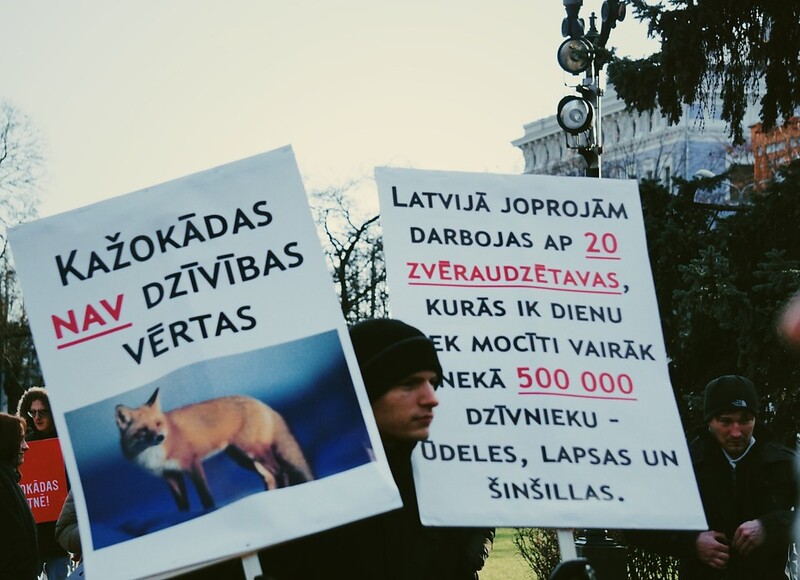 KAŽOKĀDAS
NAV DZĪVĪBAS
VĒRTAS
LATVIJĀ JOPROJĀM
DARBOJAS AP 20
ZVĒRAUDZĒTAVAS,
KURĀS IK DIENU
MOCĪTI VAIRĀK
NEKĀ 500 000
DZĪVNIEKU -
ŪDELES, LAPSAS UN
ŠINŠILLAS.